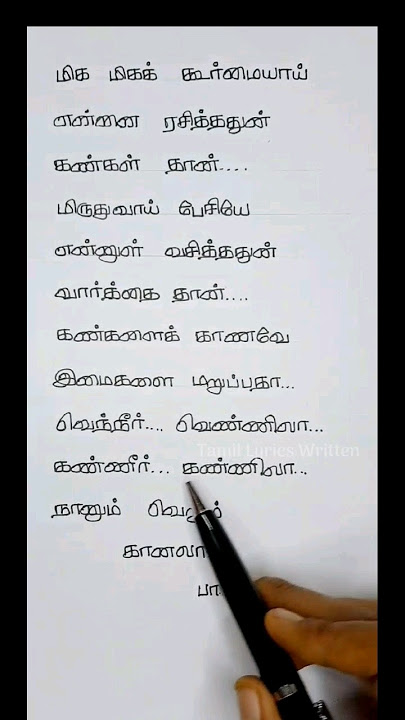 மிக மிகக் கூர்மையாய்
என்னை ரசித்ததுன்
கண்கள் தான்....
மிருதுவாய் பேசியே
என்னுள் வசித்ததுன்
வார்த்தை தான்....
கண்களைக் காணவே
இமைகளை மறுப்பதா...
வெந்நீர்... வெண்ணிலா...
Tamil Lyrics Written
கண்ணீர்... கண்ணிலா...
நானும் வெறும்